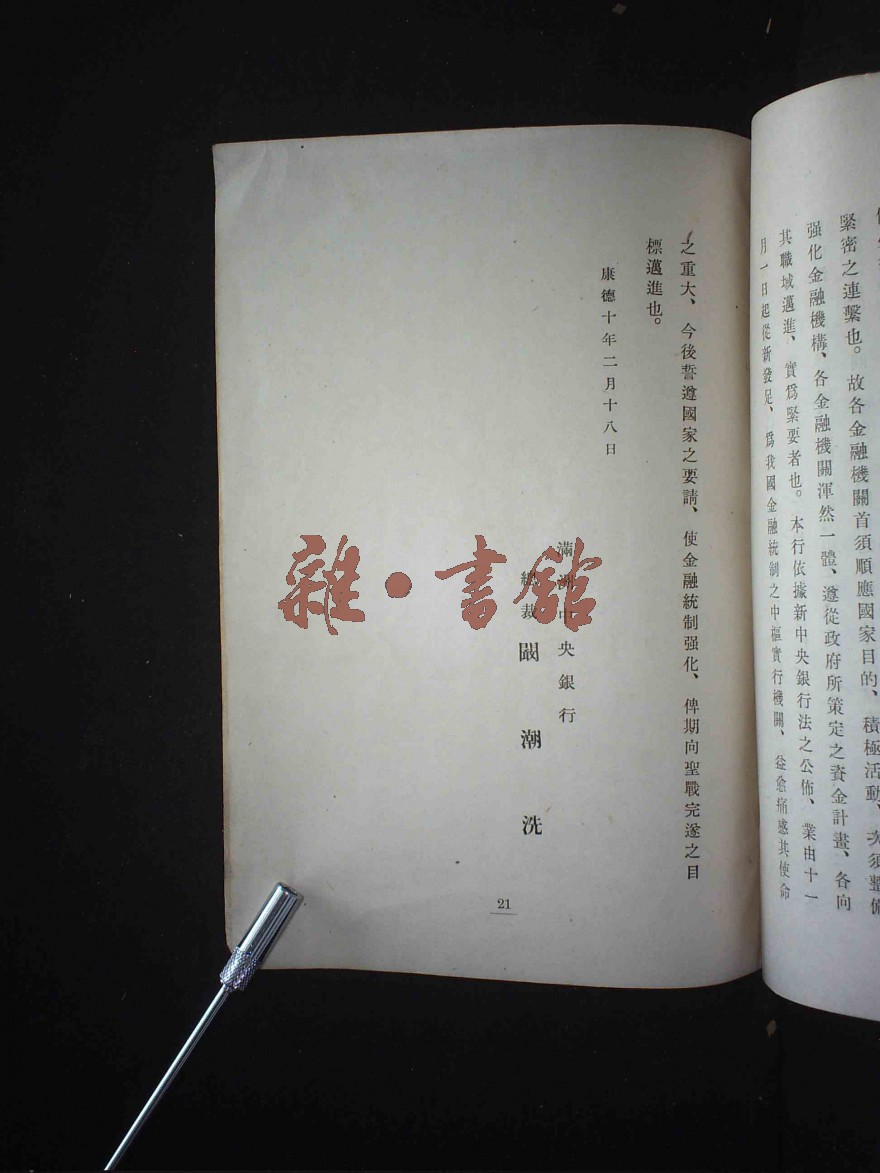 緊密之連繫也。故各金融機關首須順應國家目的、積極活動、次須整備
强化金融機構、各金融機關渾然一體、遵從政府所策定之資金計畫、各向
其職域邁進、實爲緊要者也。本行依據新中央銀行法之公佈、業由十一
月一日起從新發足、爲我國金融統制之中樞實行機關、益愈痛感其使命
之重大、今後誓遵國家之要請、使金融統制强化、俾期向聖戰完遂之目
標邁進也。
康德十年二月十八日
滿洲中央銀行
總裁 闞潮洗
21
雜·書館